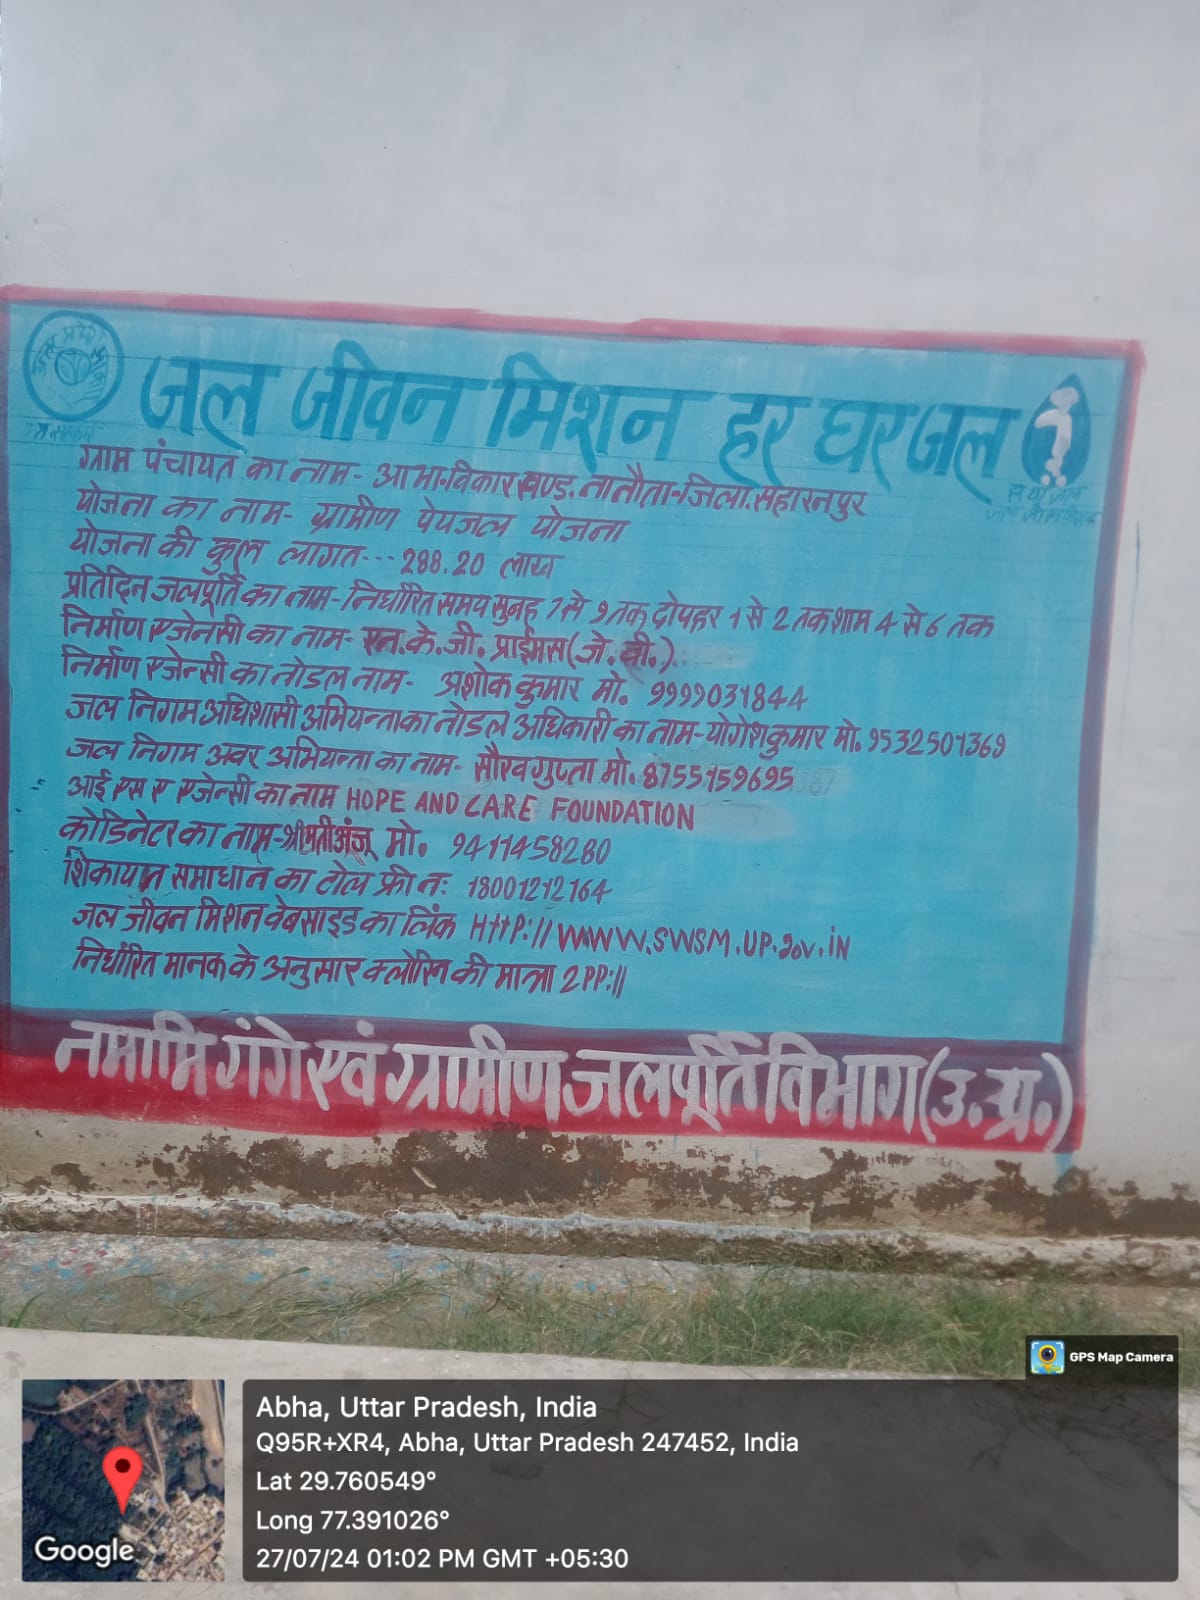 जल जीवन मिशन हर घर जल
ग्राम पंचायत का नाम- आभा-विकार खण्ड. नानौता-जिला. सहारनपुर
योजना का नाम- ग्रामीण पेयजल योजना
योजना की कुल लागत--- 288.20 लाख
प्रतिदिन जलपूर्ति का नाम- निर्धारित समय सुबह 7 से 9 तक दोपहर 1 से 2 तक शाम 4 से 6 तक
निर्माण एजेनसी का नाम- एन.के.जी. प्राईमस (जे. वी.)
निर्माण एजेन्सी का नोडल नाम- अशोक कुमार मो. 9999031844
जल निगम अधिशासी अभियन्ता का नोडल अधिकारी का नाम- योगेश कुमार मो. 9532501369
जल निगम अवर अभियन्ता का नाम- सौरव गुप्ता मो. 8755159695
आई एस ए एजेन्सी का नाम HOPE AND CARE FOUNDATION
कोडिनेटर का नाम- श्रीमती अंजू मो. 9411458280
शिकायत समाधान का टोल फ्री न: 18001212164
जल जीवन मिशन वेबसाइड का लिंक HttP:// WWW.SWSM.UP.gov.iN
निर्धारित मानक के अनुसार क्लोरिन की मात्रा 2 PP://
नमामि गंगे एवं ग्रामीण जलपूर्ति विभाग (उ.प्र.)
GPS Map Camera
Abha, Uttar Pradesh, India
Q95R+XR4, Abha, Uttar Pradesh 247452, India
Lat 29.760549°
Long 77.391026°
27/07/24 01:02 PM GMT +05:30
Google